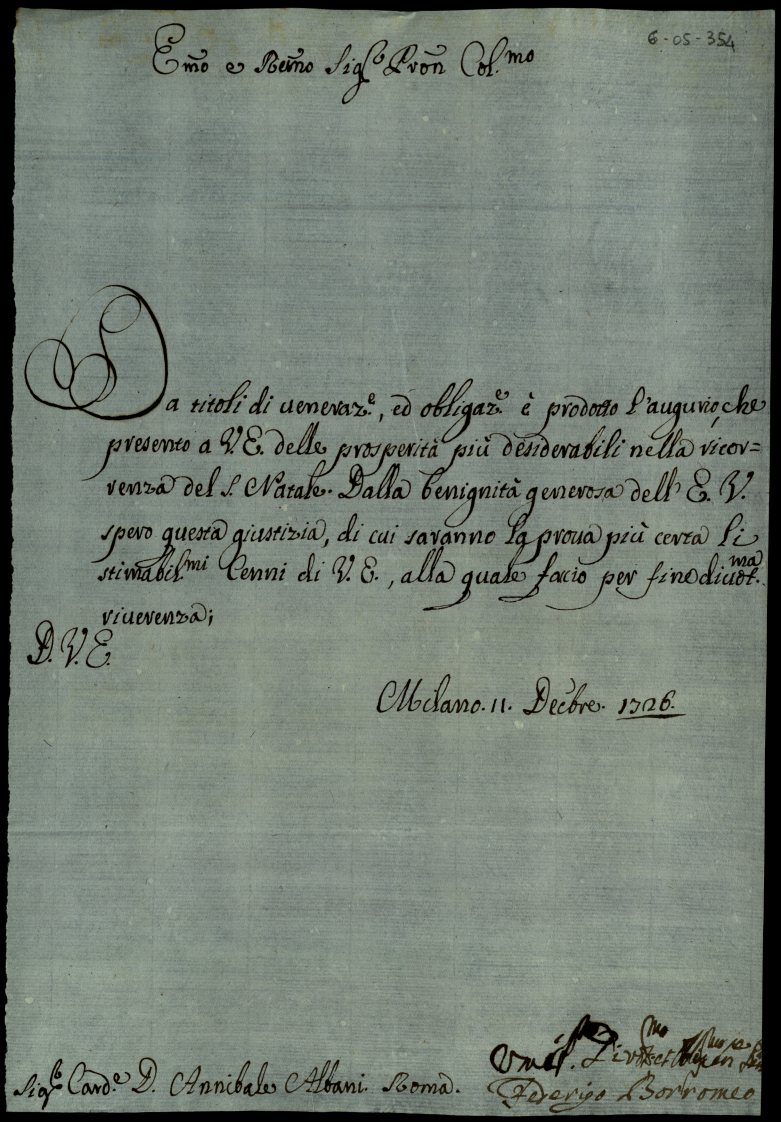 6-05-354
Em̃o e Reũno Sig.ᵉ Pron̄ Col.ᵐᵒ
Da titoli di veneraz.ᵉ, ed obligaz.ᵉ è prodotto l'augurio, che
presento a V.E. delle prosperità più desiderabili nella ricor=
renza del S. Natale. Dalla benignità generosa dell' E. V.
spero questa giustizia, di cui saranno la proua più certa li
stimabil.ᵐⁱ Cenni di V. E., alla quale faccio per fine diuot.ᵐᵃ
riuerenza;
D. V. E.
Milano. 11. Decb̃re. 1726.
Sig.ᵉ Card.ᵉ D. Annibale Albani. Roma.
Federigo Borromeo